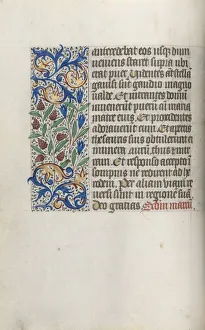 antecedebat eos usq3 dum
veniens staret supra ubi
erat puer Videntes aut stella
gavisi sunt gaudio magno
valde Et intrantes domu
invenerunt pueru cu maria
matre eius Et procidentes
adoraverunt eum Et apertis
thesauris suis obtulerunt ei
munera Auru thus et mirra
ram Et responso accepto i
sompnis ne redirent ad he
rodem Per aliam viam re
versi sunt in regione sua
Deo gratias